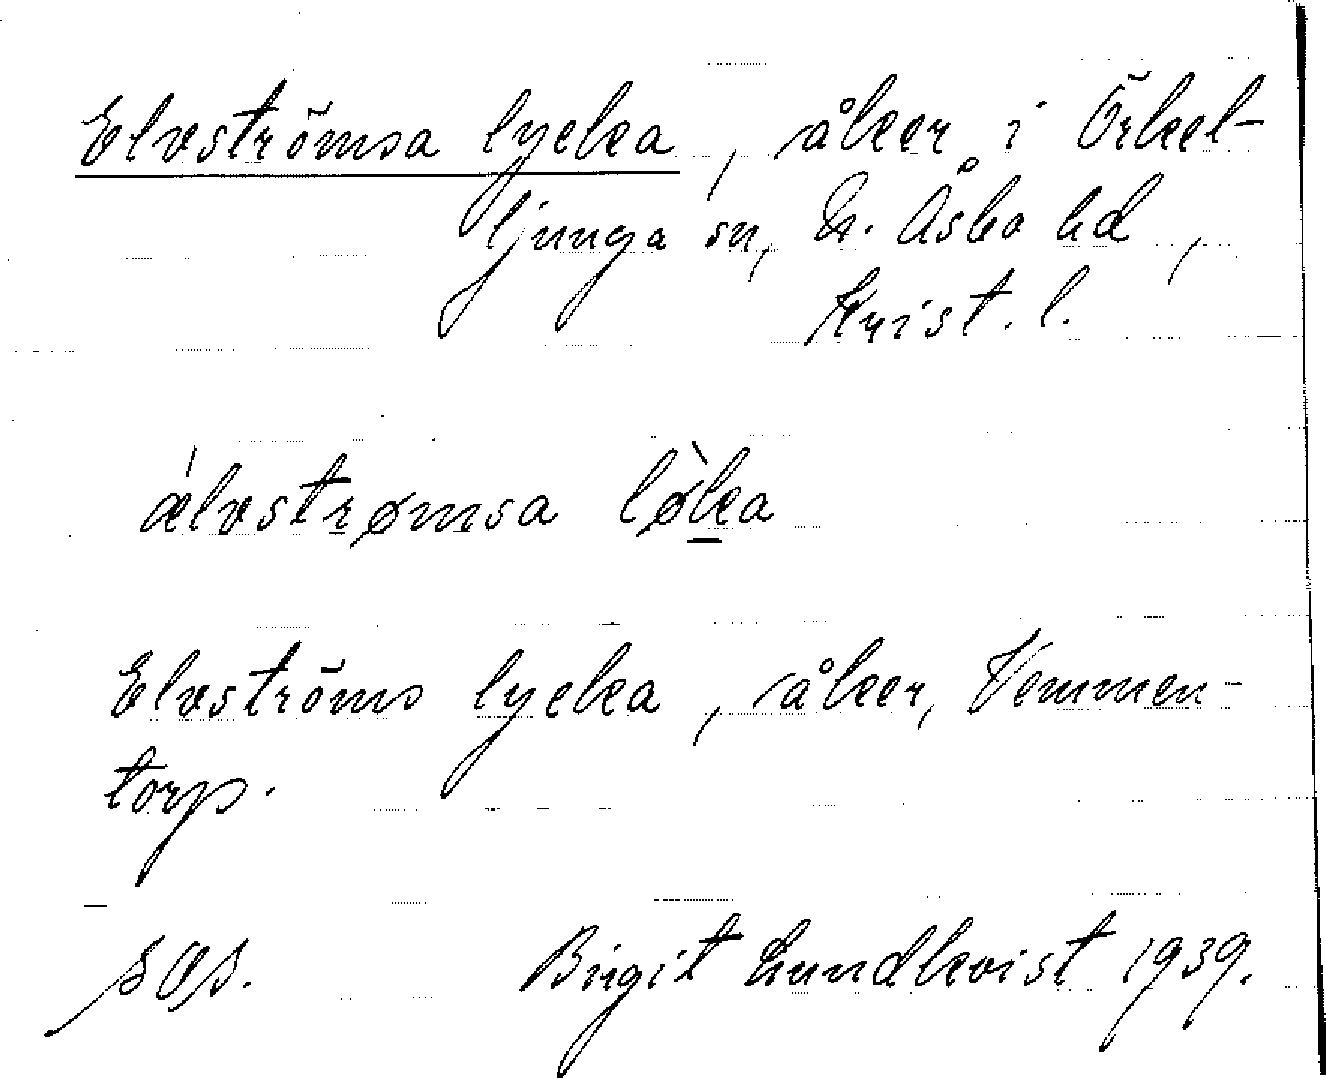 Elvströmsa lycka, åker i Örkel-
ljunga sn, N. Åsbo hd,
Krist. l.
ǽlvstrømsa lø̀ka
Elvströms lycka, åker, Vemmen-
torp.
sas. Birgit Lundkvist 1939.